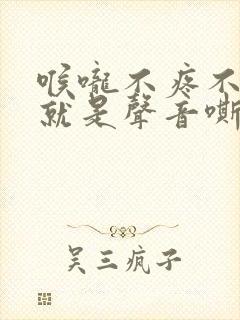 喉嚨不疼不
就是聲音嘶
吴三疯子